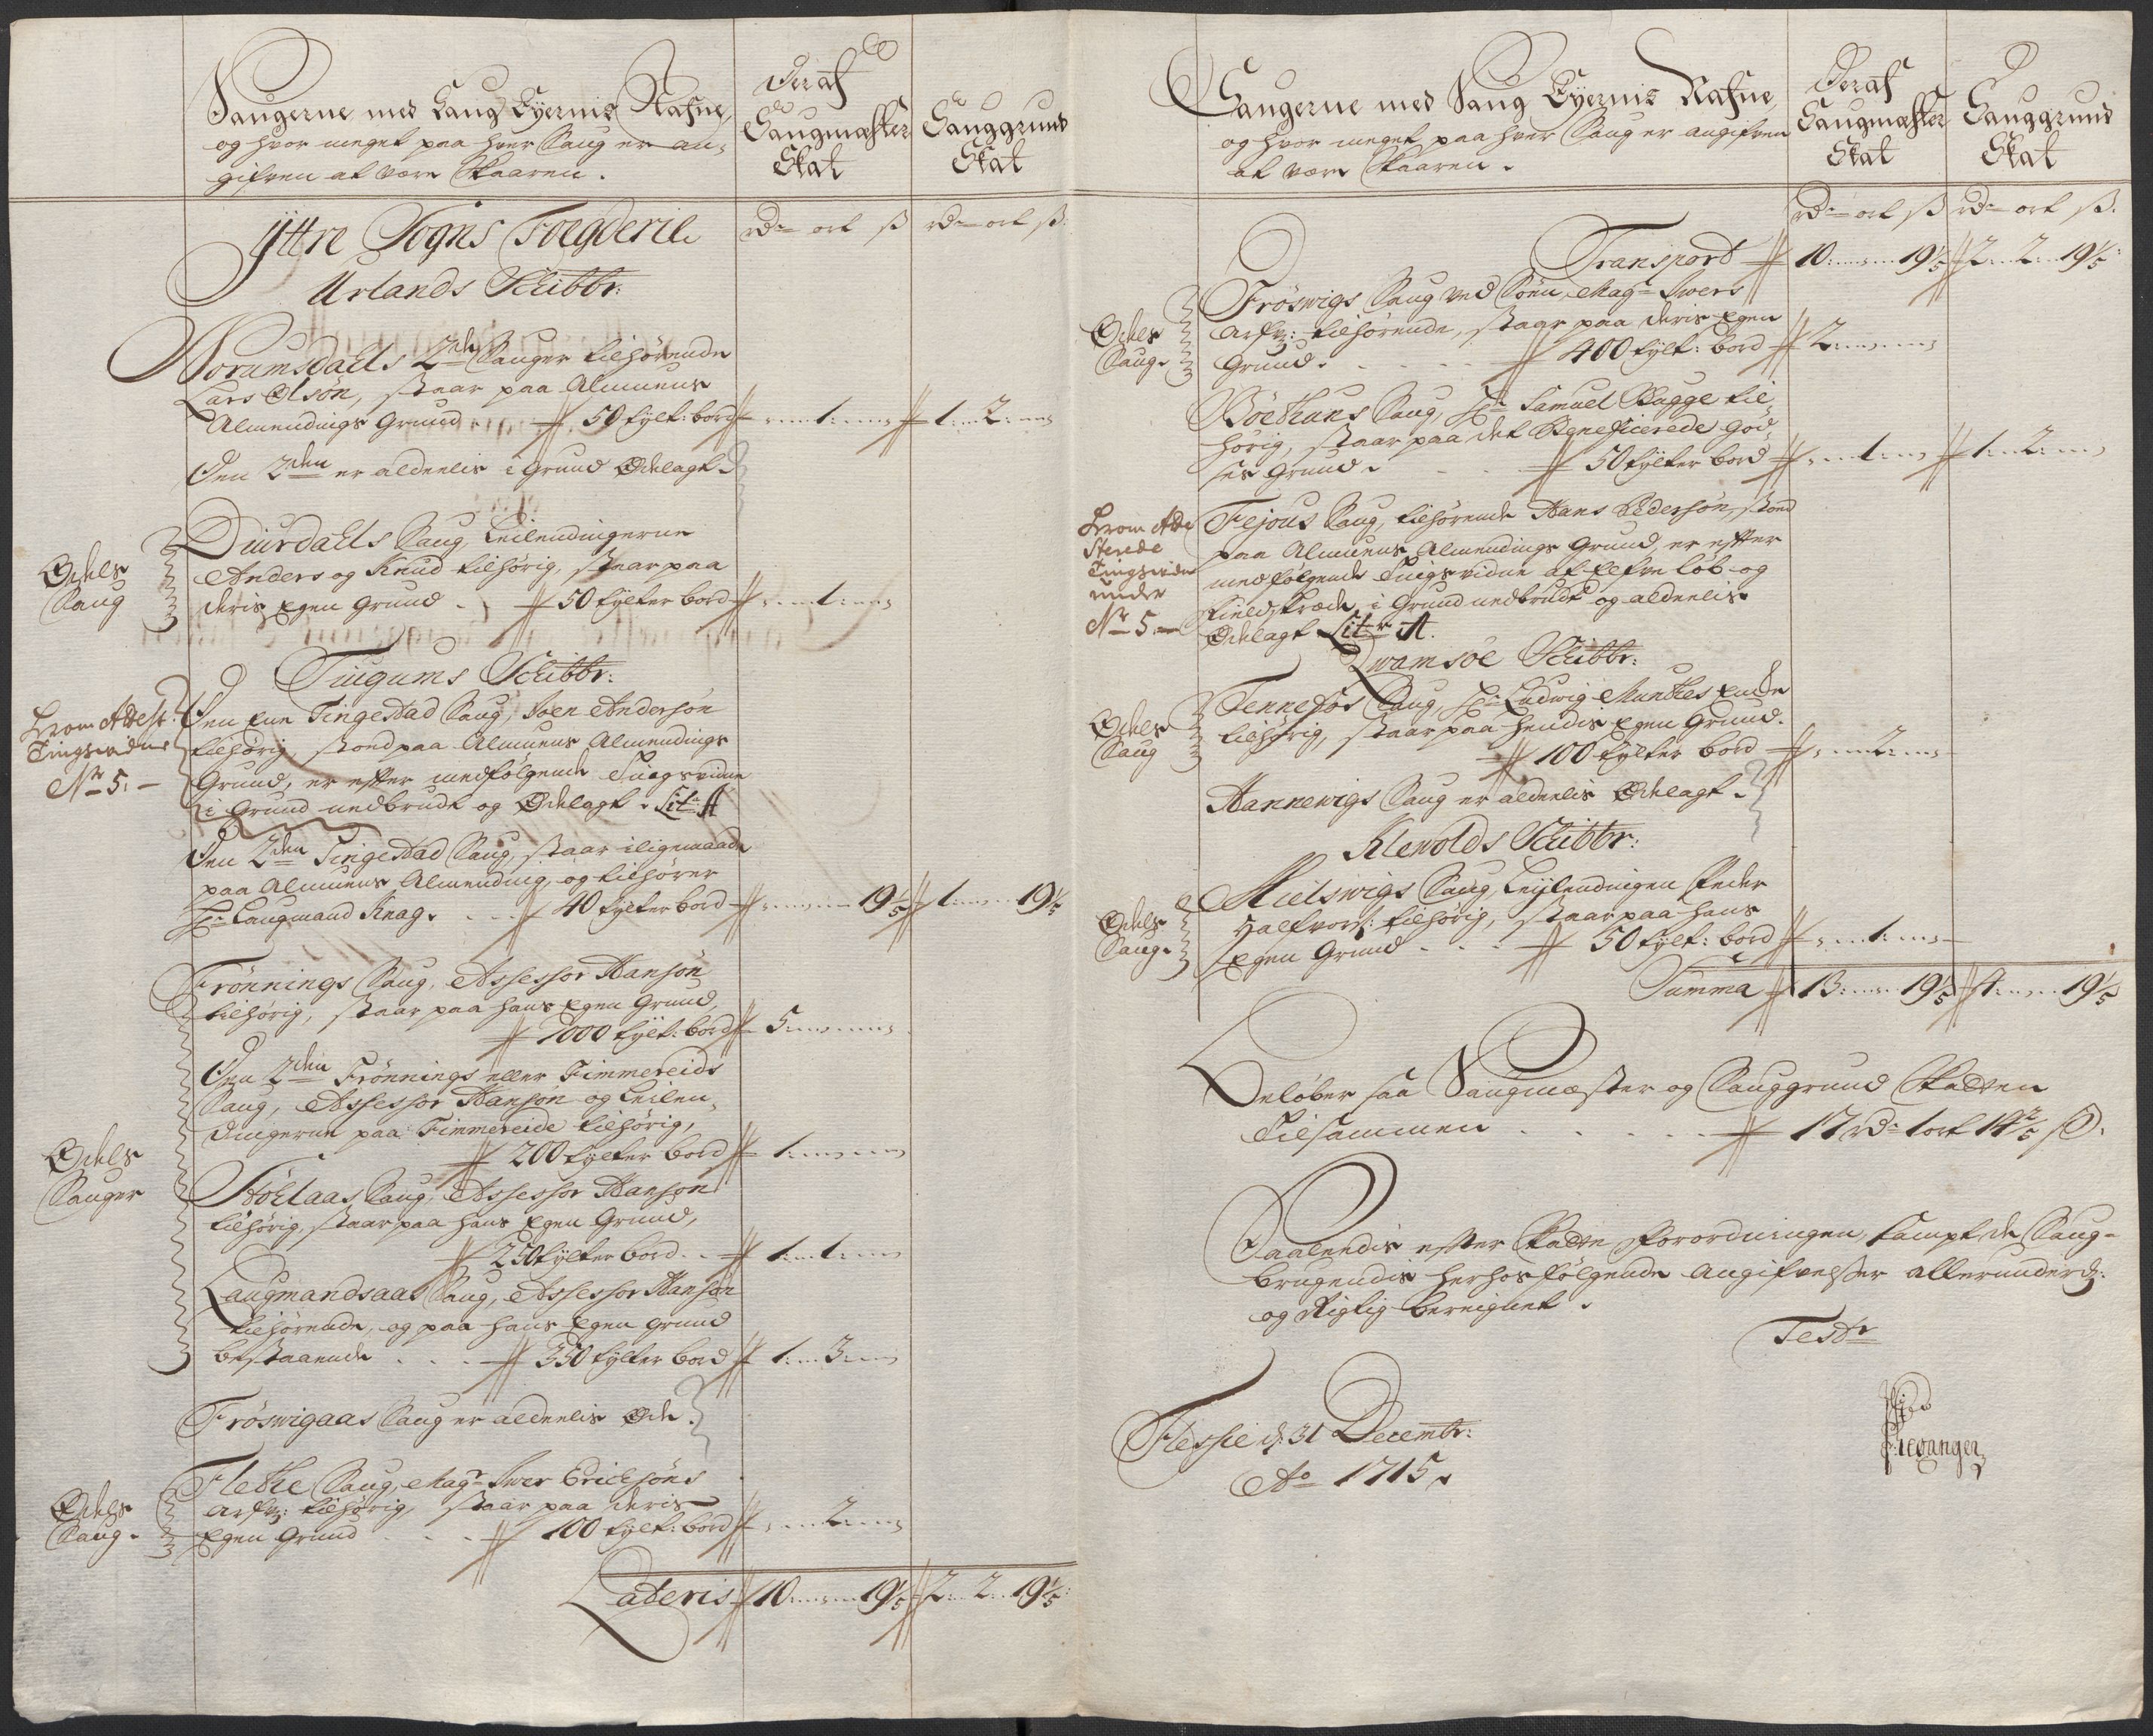 Saugerne med Saug Eyernis Nafne,
og hvor meget paa hver Saug er an-
gifven at være Skaaren.
Deraf
Saugmæster
Skat
Sauggrund
Skat
Yttre Sogns Foegderie
rdr ort ß rdr ort ß.
Urlands Skibbr:
Norumsdaels 2de Sauger tilhørende
Lars Olsøn, staar paa Almuens
Almendings Grund 50 tylt: bord 1 1 2
Den 2den er aldeelis i Grund Ødelagt.
Ødels
Saug
Diurdaels Saug, Leilendingerne
Anders og Knud tilhørig, staar paa
deris Egen Grund 50 tylter bord 1
Tiugums Skibbr:
Hvorom Attest:
Tingsvidne
No 5.
Den Eene Tingestad Saug, Joen Andersøn
tilhørig, stoed paa Almuens Almendings
Grund, er efter medfølgende Tingsvidne
i Grund nedbrudt og Ødelagt. Lit: A
Den 2den Tingestad Saug, staar iligemaade
paa Almuens Almending, og tilhører
Hr Laugmand Knag. 40 tylter bord 19 1/5 1 19 1/5
Frønnings Saug, Assessor Hansøn
tilhørig, staar paa hans Egen Grund,
1000 tylt: bord 5
Den 2den Frønnings eller Fimmereids
Saug, Assessor Hansøn og Leilen-
dingerne paa Fimmereide tilhørig,
200 tylter bord 1
Ødels
Sauger
Hölaas Saug, Assessor Hansøn
tilhørig, staar paa hans Egen Grund,
250 tylter bord 1 1
Laugmandsaas Saug, Assessor Hansøn
tilhørende, og paa hans Egen grund
bestaaende 350 tylter bord 1 3
Frøswigaas Saug er aldeelis Øde.
Ødels
Saug.
Flethe Saug, Magr Iver Erichsøns
arfv: tilhørig, staar paa deris
Egen Grund 100 tylt: bord 2
Lateris 10 19 1/5 2 2 19 1/5
Saugerne med Saug Eyernis Nafne
og hvor meget paa hver Saug er angifven
at være Skaaren.
Deraf
Saugmæster
Skat
Sauggrund
Skat
rdr ort ß rdr ort ß.
Transport 10 19 1/5 2 2 19 1/5
Ødels
Saug.
Frøswigs Saug ved Søen, Magr Iwers
arfv: tilhørende, staar paa deris Egen
Grund. 400 tylt: bord 2
Böethuns Saug, Hr Samuel Bugge til-
hørig, staar paa det Beneficerede God-
ses Grund. 50 tylter bord 1 1 2
Hvorom Atte-
sterede
Tingsvidne
under
No 5.
Fejous Saug, tilhørende Hans Pedersøn, stoed
paa Almuens Almendings Grund, er efter
medfølgende Tingsvidne af Elfve løb og
Fieldskræde, i Grund nedbrudt og aldeelis
Ødelagt Litr A.
Qwamsöe Skibbr:
Ødels
Saug
Tennefos Saug, Hr Ludwig Munthes Enke
tilhørig, staar paa hendis Egen Grund.
100 tylter bord 2
Hannewigs Saug er aldeelis Ødelagt.
Klewolds Skibbr:
Ødels
Saug.
Mielswigs Saug, Leylendingen Peder
Halfvors: tilhørig, staar paa hans
Egen Grund 50 tylt: bord 1
Summa 13 19 1/5 4 19 1/5
Beløber saa Saugmæster og Sauggrund Skatten
Tilsammen 17 rdr 1 ort 14 2/5 ß.
Saaledis efter Skatte Forordningen sampt de Saug-
brugendis herhos følgende Angifvelser allerunderd:
og Rigtig bereignet.
Teste
Flessie d: 31 Decembr:
Ao 1715.